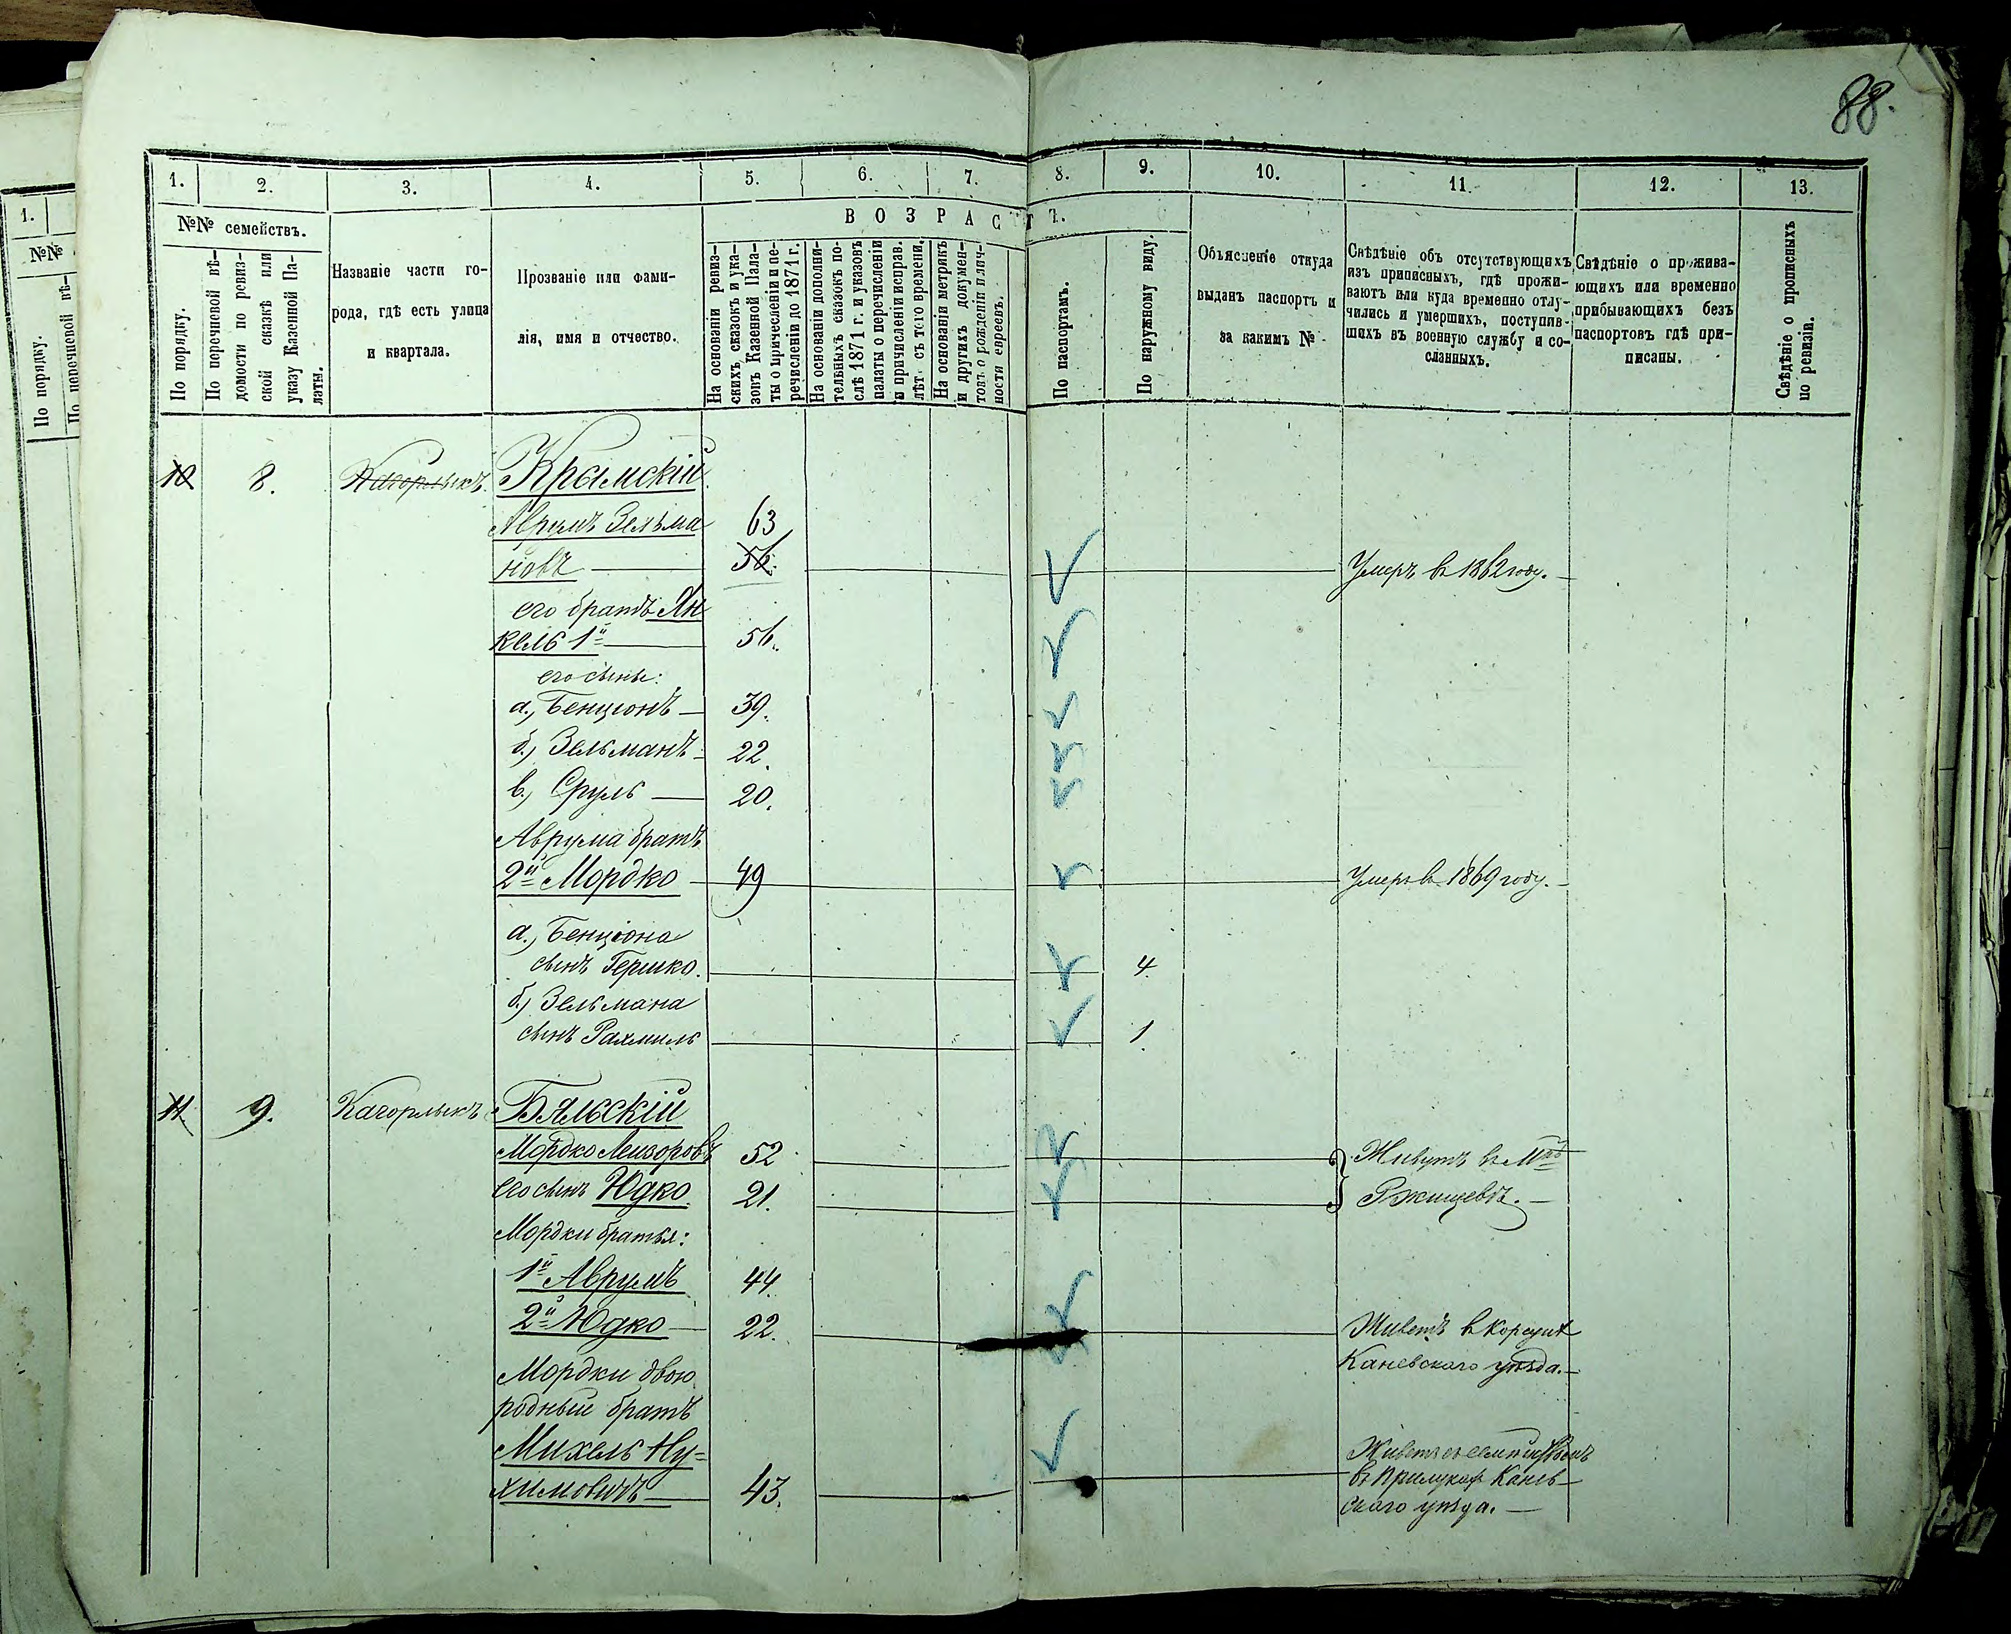 88.
1. 2. 3. 4. 5. 6. 7. 8. 9. 10. 11. 12. 13.
№№ семействъ.
ВОЗРАСТЪ.
По порядку.
По перечневой вѣ-
домости по ревиз-
ской сказкѣ или
указу Казенной Па-
латы.
Названіе части го-
рода, гдѣ есть улица
и квартала.
Прозваніе или фами-
лія, имя и отчество.
На основаніи ревиз-
скихъ сказокъ и ука-
зовъ Казенной Пала-
ты о причисленіи и пе-
речисленіи до 1871 г.
На основаніи дополни-
тельныхъ сказокъ по-
слѣ 1871 г. и указовъ
палаты о перечисленіи
и причисленіи исправ.
лѣт съ того времени.
На основаніи метрикъ
и другихъ докумен-
товъ о рожденіи и лич-
ности евреевъ.
По паспортамъ.
По наружному виду.
Объясненіе откуда
выданъ паспортъ и
за какимъ №
Свѣдѣніе объ отсутствующихъ
изъ приписныхъ, гдѣ прожи-
ваютъ или куда временно отлу-
чились и умершихъ, поступив-
шихъ въ военную службу и со-
сланныхъ.
Свѣдѣніе о прожива-
ющихъ или временно
прибывающихъ безъ
паспортовъ гдѣ при-
писаны.
Свѣдѣніе о прописныхъ
по ревизіи.
1.
№№
По порядку.
По перечневой вѣ-
10 8. Кагорлыкъ Крымскій
Аврумъ Зельма 63
новъ 56. Умеръ въ 1862 году.
его братъ Ян
кель 1й 56.
его сыны:
а., Бенціонъ 39.
б., Зельманъ 22.
в., Сруль 20.
Аврума братъ
2й Мордко 49 Умеръ въ 1869 году.
а., Бенціона
сынъ Гершко. 4
б., Зельмана
сынъ Рахмиль 1.
11. 9. Кагорлыкъ Бяльскій
Мордко Лейзоровъ 52 Живутъ въ М
его сынъ Юдко 21. Ржищевѣ.
Мордки братья:
1й Аврумъ 44.
2й Юдко 22. Живетъ въ Корсунѣ
Каневскаго уѣзда.
Мордки двою
родный братъ
Михель Ну=
химовичъ 43. Живетъ съ
въ Прилукахъ Канев-
скаго уѣзда.